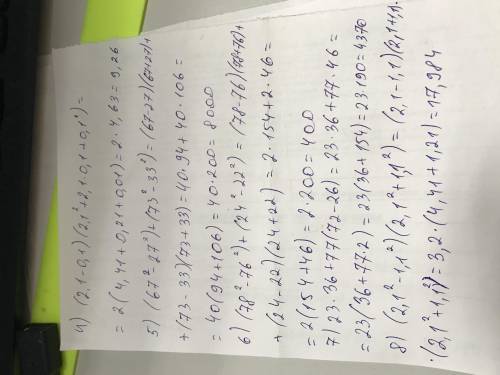 4) (2,1-0,1)(2,1²+2,1·0,1+0,1²)=
=2(4,41+0,21+0,01)=2·4,63=9,26
5) (67²-27²)+(73²-33²)=(67-27)(67+27)+
+(73-33)(73+33)=40·94+40·106=
=40(94+106)=40·200=8000
6) (78²-76²)+(24²-22²)=(78-76)(78+76)+
+(24-22)(24+22)=2·154+2·46=
=2(154+46)=2·200=400
7) 23·36+77(72-26)=23·36+77·46=
=23(36+77·2)=23·190=4370
8) (2,1²-1,1²)(2,1²+1,1²)=(2,1-1,1)(2,1+1,1)·
·(2,1²+1,1²)=3,2(4,41+1,21)=17,984